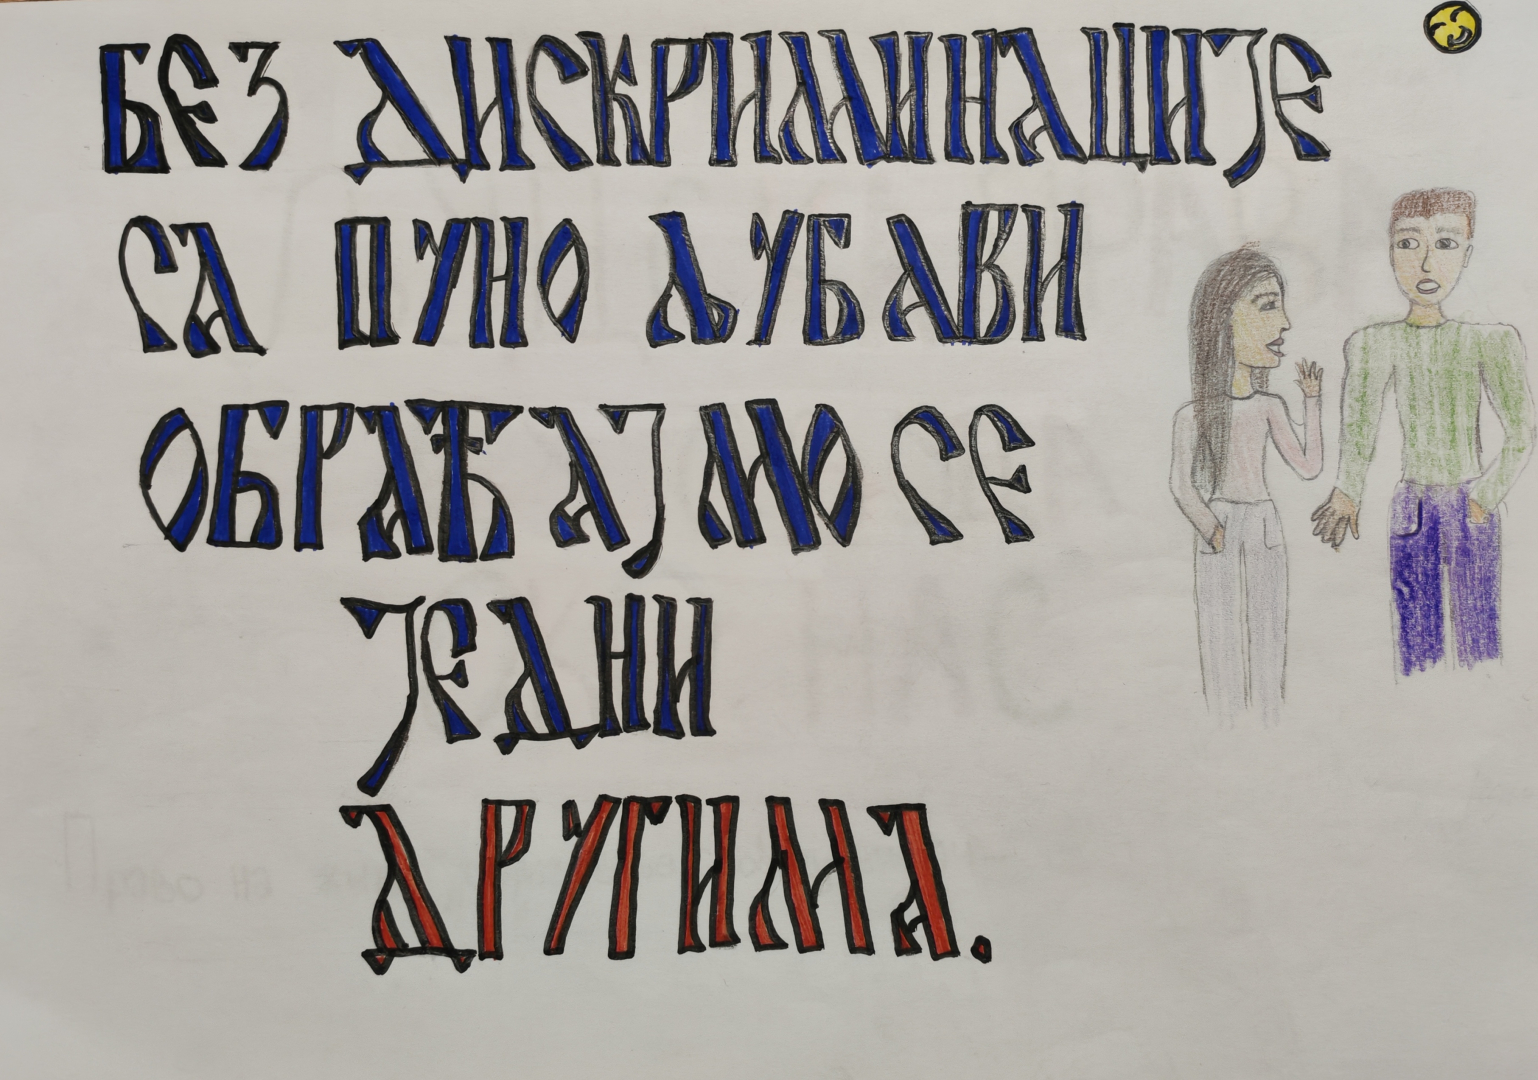 БЕЗ ДИСКРИМИНАЦИЈЕ
СА ПУНО ЉУБАВИ
ОБРАЋАЈМО СЕ
ЈЕДНИ
ДРУГИМА.